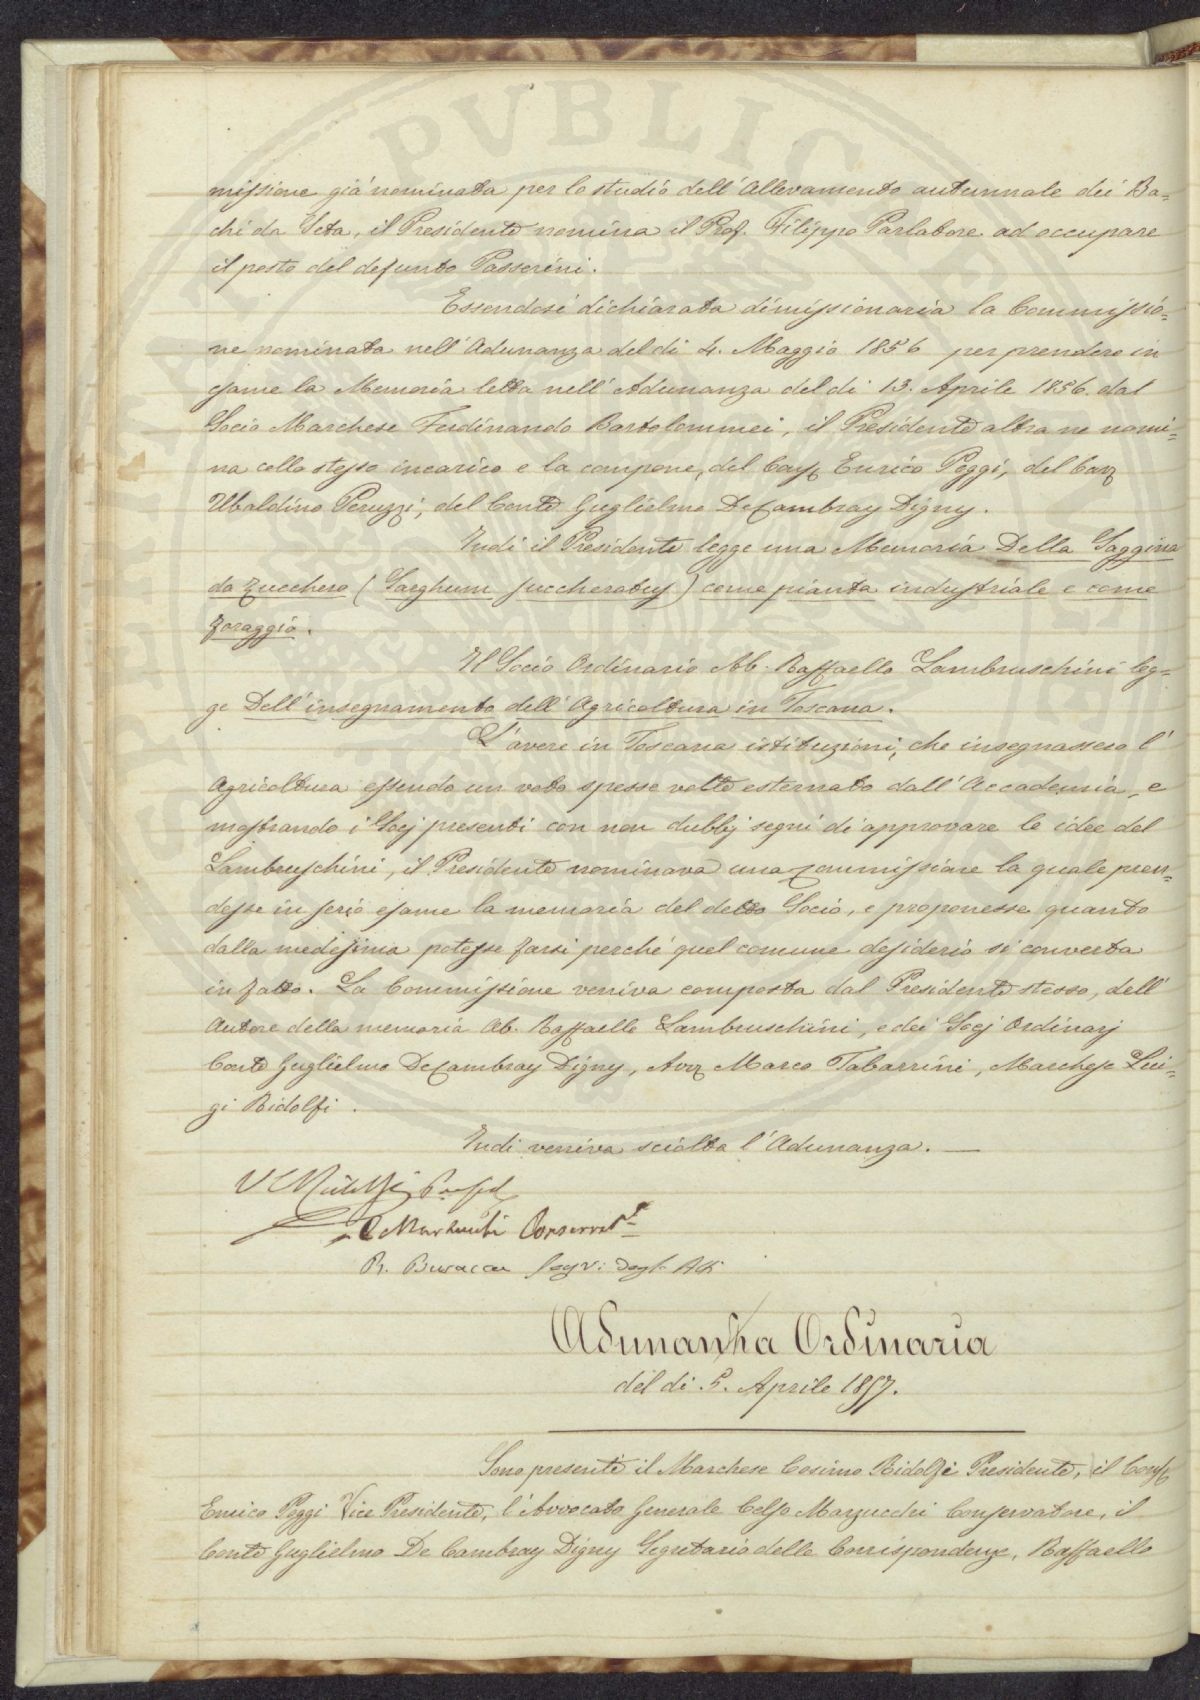 missione già nominata per lo studio dell'Allevamento autunnale dei Ba=
chi da Seta, il Presidente nomina il Prof. Filippo Parlatore ad occupare
il posto del defunto Passerini.
Essendosi dichiarata dimissionaria la Commissio=
ne nominata nell'Adunanza del dì 4. Maggio 1856 per prendere in
esame la Memoria letta nell'Adunanza del dì 13. Aprile 1856. dal
Socio Marchese Ferdinando Bartolommei, il Presidente altra ne nomi=
na collo stesso incarico e la compone, del Consr Enrico Poggi, del Cavr
Ubaldino Peruzzi, del Conte Guglielmo De Cambray Digny.
Indi il Presidente legge una Memoria Della Saggina
da zucchero (Sorghum succheratus) come pianta industriale e come
foraggio.
Il Socio Ordinario Ab. Raffaello Lambruschini leg=
ge Dell'insegnamento dell'Agricoltura in Toscana.
L'avere in Toscana istituzioni, che insegnassero l'
Agricoltura essendo un voto spesse volte esternato dall'Accademia, e
mostrando i Socj presenti con non dubbj segni di approvare le idee del
Lambruschini, il Presidente nominava una Commissione la quale pren=
desse in serio esame la memoria del detto Socio, e proponesse quanto
dalla medesima potesse farsi perché quel comune desiderio si converta
in fatto. La Commissione veniva composta dal Presidente stesso, dell'
Autore della memoria Ab. Raffaello Lambruschini, e dei Socj Ordinarj
Conte Guglielmo De Cambray Digny, Avvr Marco Tabarrini, Marchese Lui=
gi Ridolfi.
Indi veniva sciolta l'Adunanza. —
Ridolfi Presid
C Marzucchi Conservatre
R. Buracchi Segr: degli Atti
Adunanza Ordinaria
del dì 5. Aprile 1857.
Sono presenti il Marchese Cosimo Ridolfi Presidente, il Consr
Enrico Poggi Vice Presidente, l'Avvocato Generale Celso Marzucchi Conservatore, il
Conte Guglielmo De Cambray Digny Segretario delle Corrispondenze, Raffaello
PVBLIC